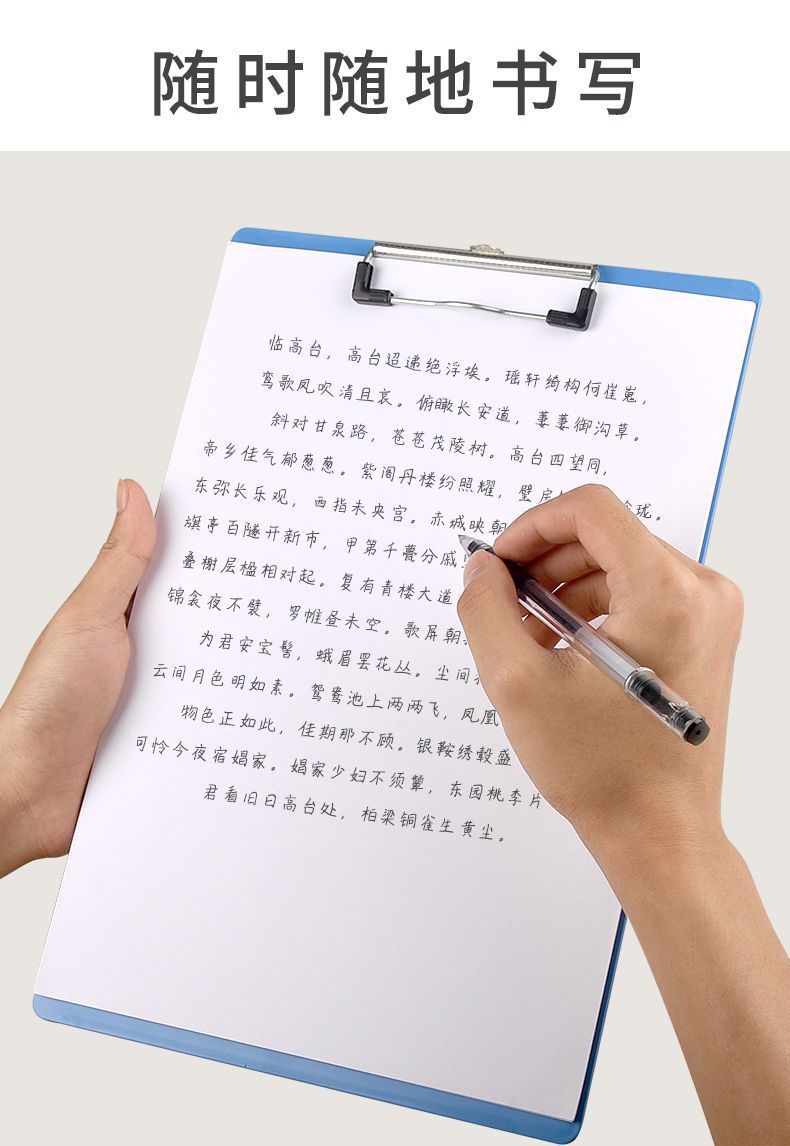 随时随地书写
临高台，高台迢递绝浮埃。瑶轩绮构何崔嵬，
鸾歌凤吹清且哀。俯瞰长安道，萋萋御沟草。
斜对甘泉路，苍苍茂陵树。高台四望同，
帝乡佳气郁葱葱。紫阁丹楼纷照耀，璧房 珑。
东弥长乐观，西指未央宫。赤城映朝
旗亭百隧开新市，甲第千甍分戚
叠榭层楹相对起。复有青楼大道
锦衾夜不襞，罗帷昼未空。歌屏朝
为君安宝髻，蛾眉罢花丛。尘间
云间月色明如素。鸳鸯池上两两飞，凤凰
物色正如此，佳期那不顾。银鞍绣毂盛
可怜今夜宿娼家。娼家少妇不须颦，东园桃李片
君看旧日高台处，柏梁铜雀生黄尘。